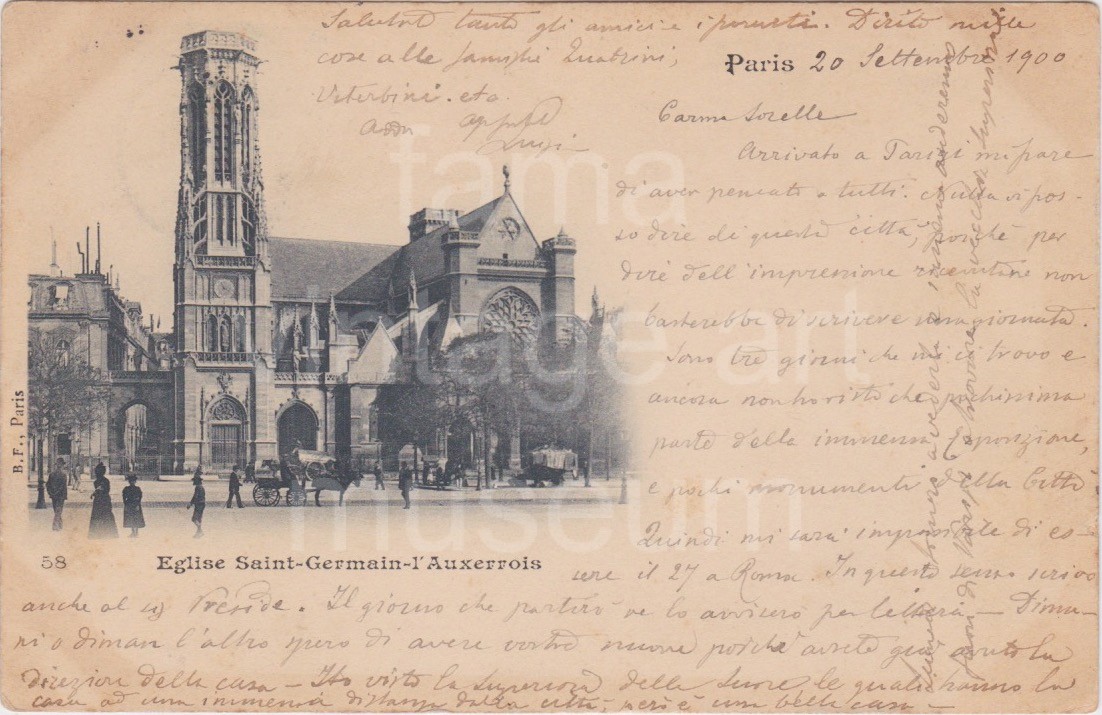 Salutate tanto gli amici e i parenti. Direte mille
cose alle famiglie Quatrini,
Viterbini. eta.
Addu
Luigi
Paris 20 Settembre 1900
Carme Sorelle
Arrivato a Parigi mi pare
di aver pensato a tutti. Nulla vi pos-
so dire di questa città, poichè per
dire dell'impressione ricevutane non
basterebbe di scrivere una giornata.
Sono tre giorni che mi ci trovo e
ancora non ho visto che pochissima
parte della immensa Esposizione,
e pochi monumenti della Città
Quindi mi sarà impossibile di es-
sere il 27 a Roma. In questo senso scrivo
anche al Preside. Il giorno che partirò ve lo avviserò per lettera - Dima-
ni o diman l'altro spero di avere vostre nuove poichè avrete già avuto la
direzione della casa - Ho visto la Superiora delle Suore le quali hanno la
casa ad una immensa distanza dalla città, però è una bella casa -
fuori di Parigi
la
B. F., Paris
58
Eglise Saint-Germain-l'Auxerrois
fama
vintage art
museum